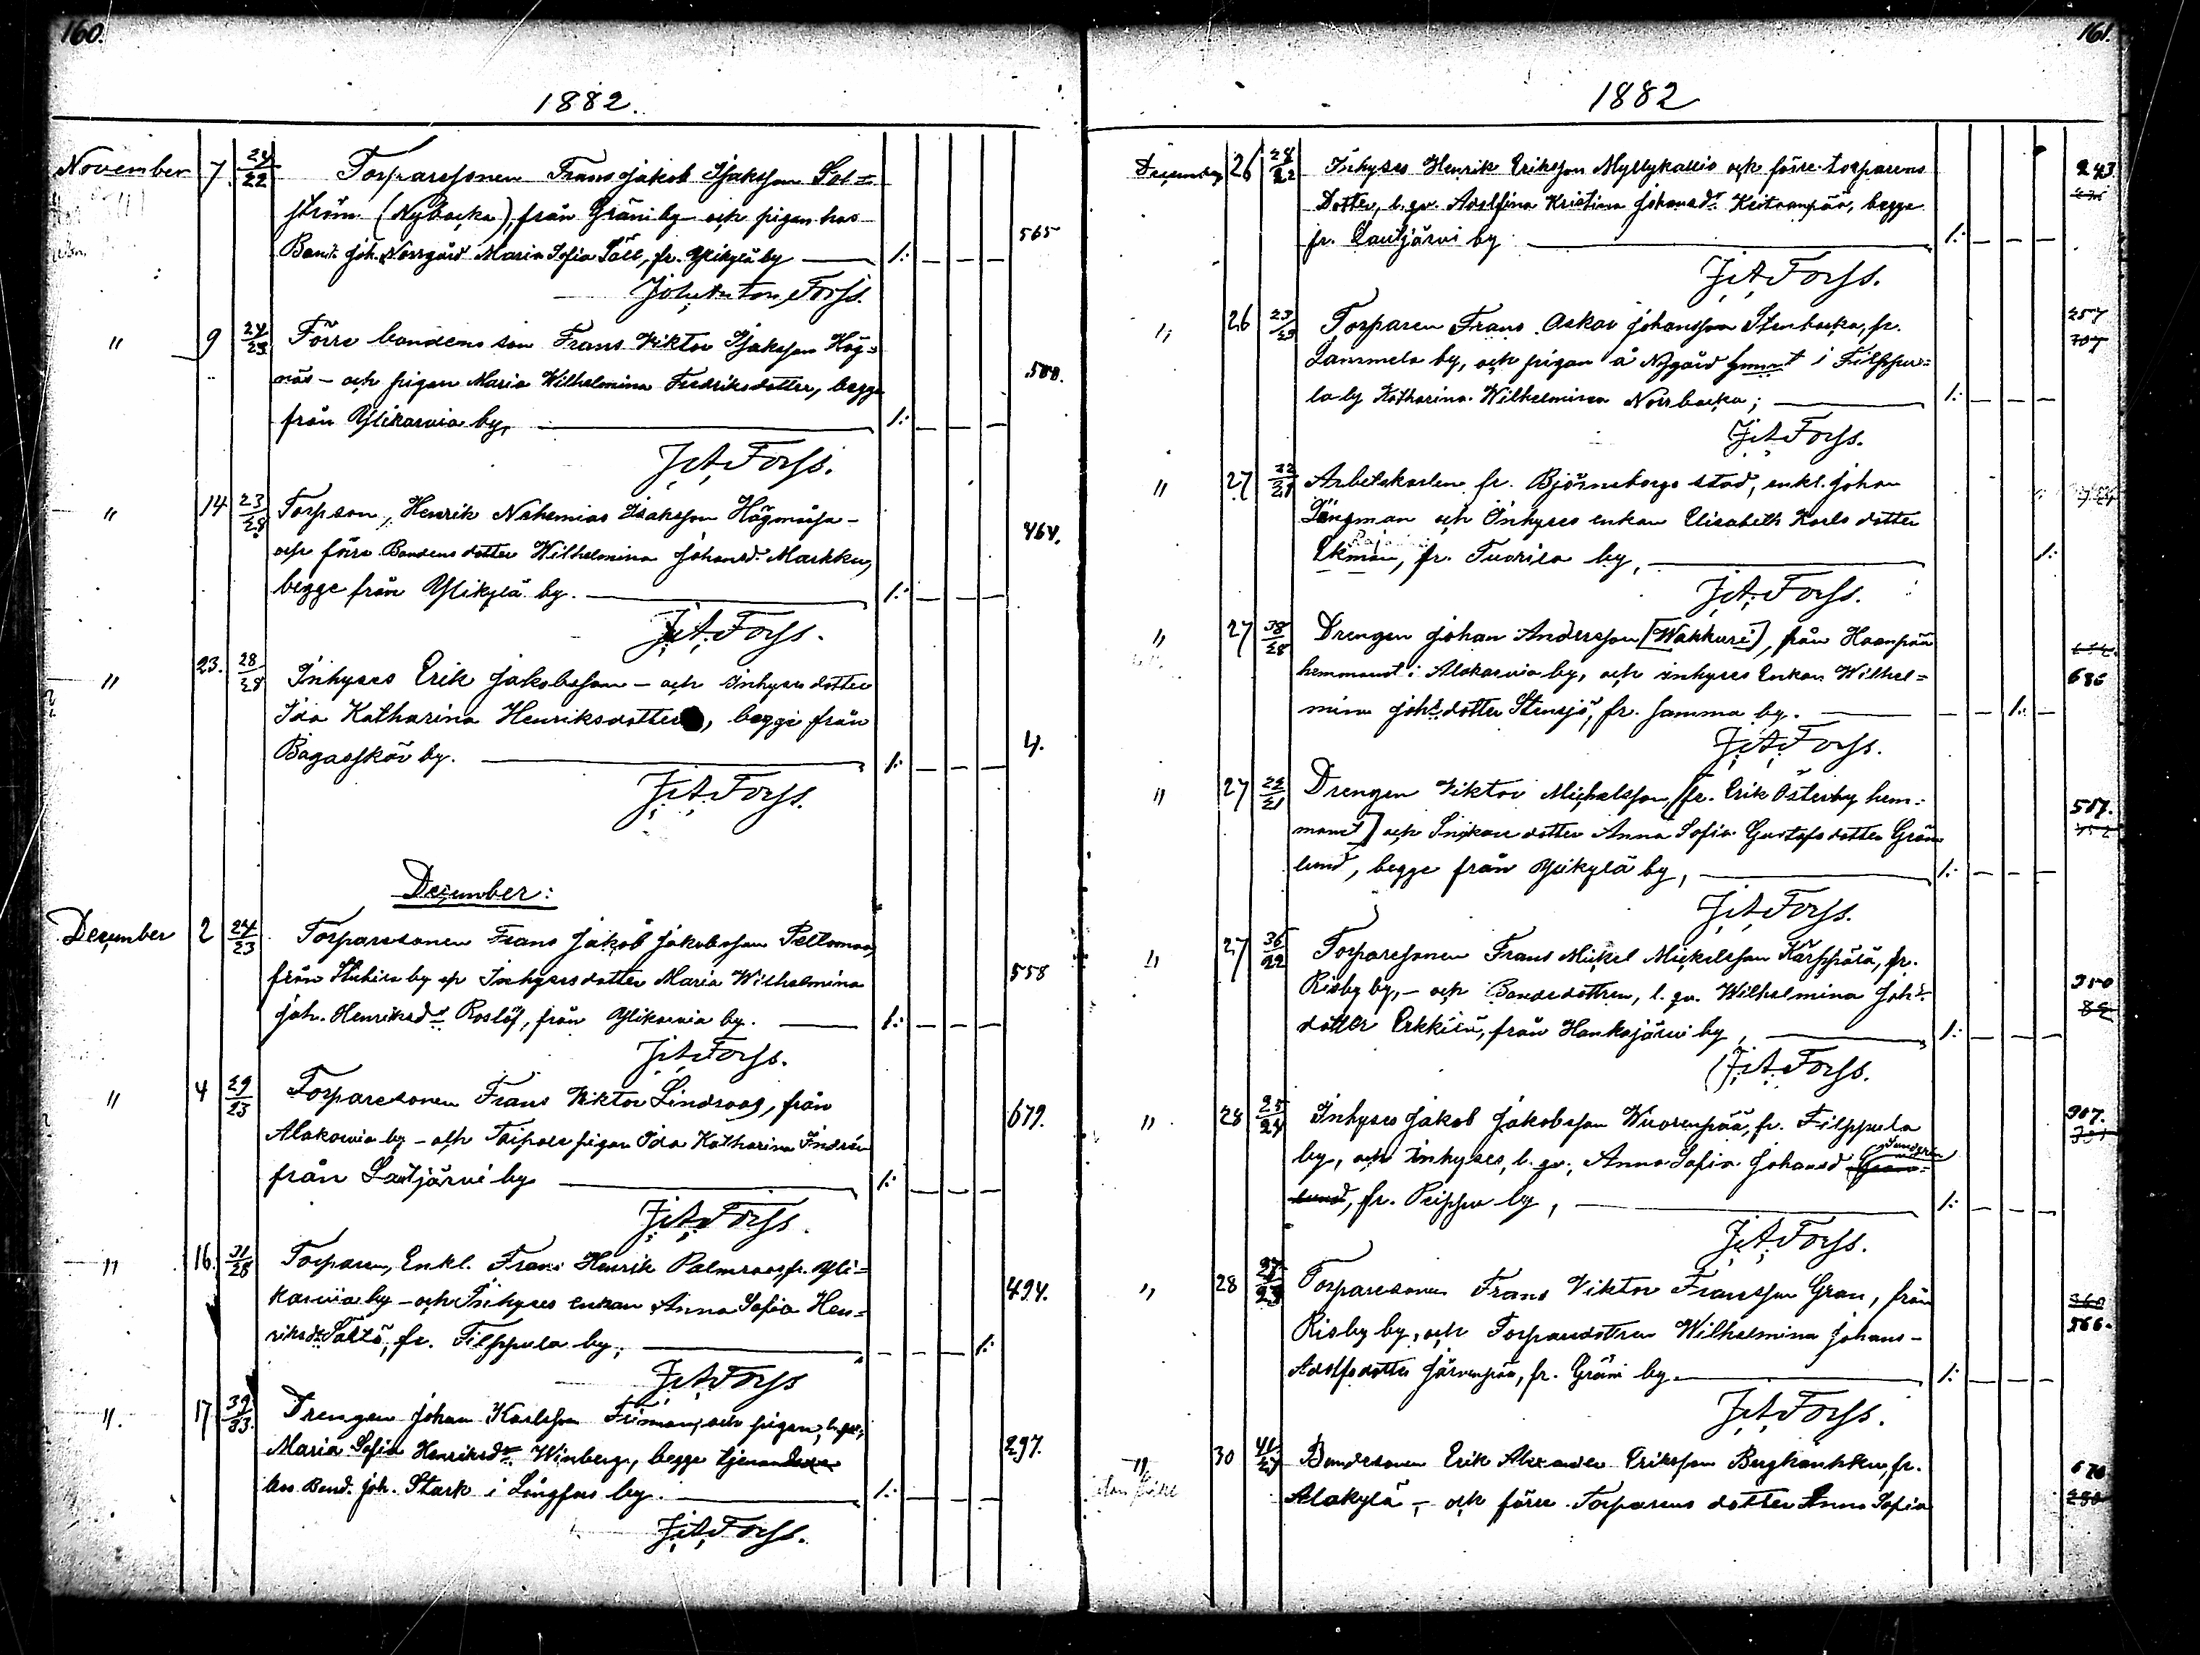 160.
1882.
November 7 24/22 Torparesonen Frans Jakob Isaksson Sol=
ström (Nybacka), från Gräni by och pigan hos
Bond. Joh. Norrgård Maria Sofia Säll, fr. Ylikylä by 1:- 565
Joh. Anton Forss.
" 9 24/23 Förre bondens son Frans Viktor Isaksson Hög=
näs - och pigan Maria Wilhelmina Fredriksdotter, begge
från Ylikarvia by, 1:- 580.
J. A. Forss.
" 14 23/28 Torp.son, Henrik Nehemias Isaksson
och förre Bondens dotter Wilhelmina Johansdr Markku,
begge från Ylikylä by. 1:- 464.
J. A. Forss.
" 23. 28/28 Inhyses Erik Jakobsson - och inhyses dotter
Ida Katharina Henriksdotter, begge från
Bagasskär by. 1:- 4.
J. A. Forss.
December:
December 2 24/23 Torparesonen Frans Jakob Jakobsson Peltomaa,
från by och Inhysesdotter Maria Wilhelmina
Joh. Henriksdr Roslöf, från Ylikarvia by. 1:- 558
J. A. Forss.
" 4 29/23 Torparesonen Frans Viktor Lindroos, från
Alakarvia by - och pigan Ida Katharina
från Lautjärvi by 1:- 679.
J. A. Forss.
" 16. 31/28 Torparen, Enkl. Frans Henrik Palmroos fr. Yli=
karvia by - och Inhyses enkan Anna Sofia Hen=
riksdr fr. Filppula by, 1:- 494.
J. A. Forss
" 17 39/33. Drengen Johan Karlsson och pigan,
Maria Sofia Henriksdr Winberg, begge tjenande
hos Bond. Joh. Stark i Långfors by. 1:- 297.
J. A. Forss.
161.
1882
December 26 28/22 Inhyses Henrik Eriksson Myllykallio och förre torparens
Dotter, l. qv. Adolfina Kristina Johansdr Keitaanpää, begge
fr. Lautjärvi by 1:- 243
J. A. Forss.
" 26 Torparen Frans Oskar Johansson Stenbacka, fr.
Lammela by, och pigan å Nygård hemmt i Filppu=
la by Katharina Wilhelmina Norrbacka; 1:- 257
707
J. A. Forss.
" 27 Arbetskarlen fr. Björneborgs stad, enkl. Johan
Långman och Inhyses enkan Elisabeth Karlsdotter
Ekman, fr. Tuorila by, 1:-
J. A. Forss.
" 27 38/28 Drengen Johan Andersson [Wakkuri], från Haanpää
hemmant i Alakarvia by, och inhyses Enkan Wilhel=
mina Johsdotter Stensjö, fr. Samma by. 1:- 686
J. A. Forss.
" 27 22/21 Drengen Viktor Michelsson, [fr. Erik Österby hem=
mant] och dotter Anna Sofia Gustafsdotter Grön
lund, begge från Ylikylä by, 1:- 517.
J. A. Forss.
" 27 36/22 Torparesonen Frans Mickel Mickelsson Kärppärä, fr.
Risby by, - och Bondedottren, l. qv. Wilhelmina Johs
dotter Erkkilä, från Honkajärvi by, 1:- 350
82
J. A. Forss.
" 28 25/24 Inhyses Jakob Jakobsson Wuorenpää, fr. Filppula
Sundgren
by, och inhyses, l. qv., Anna Sofia Johansd Grön=
lund, fr. Peippu by, 1:- 307.
J. A. Forss.
" 28 27/23 Torparesonen Frans Viktor Fransson Gran, från
Risby by, och Torparedottren Wilhelmina Johans-
Adolfsdotter Järvenpää, fr. Gräni by. 1:- 360
566.
J. A. Forss.
" 30 41/27 Bondesonen Erik Alexander Eriksson Berghänkku, fr.
Alakylä, - och förre Torparens dotter Anna Sofia 670
280